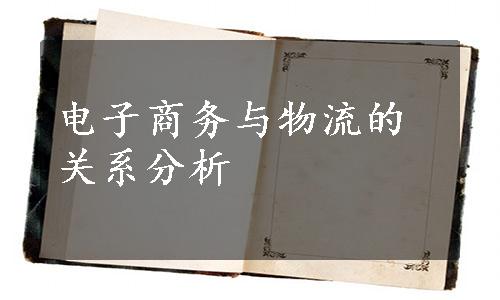 电子商务与物流的
关系分析